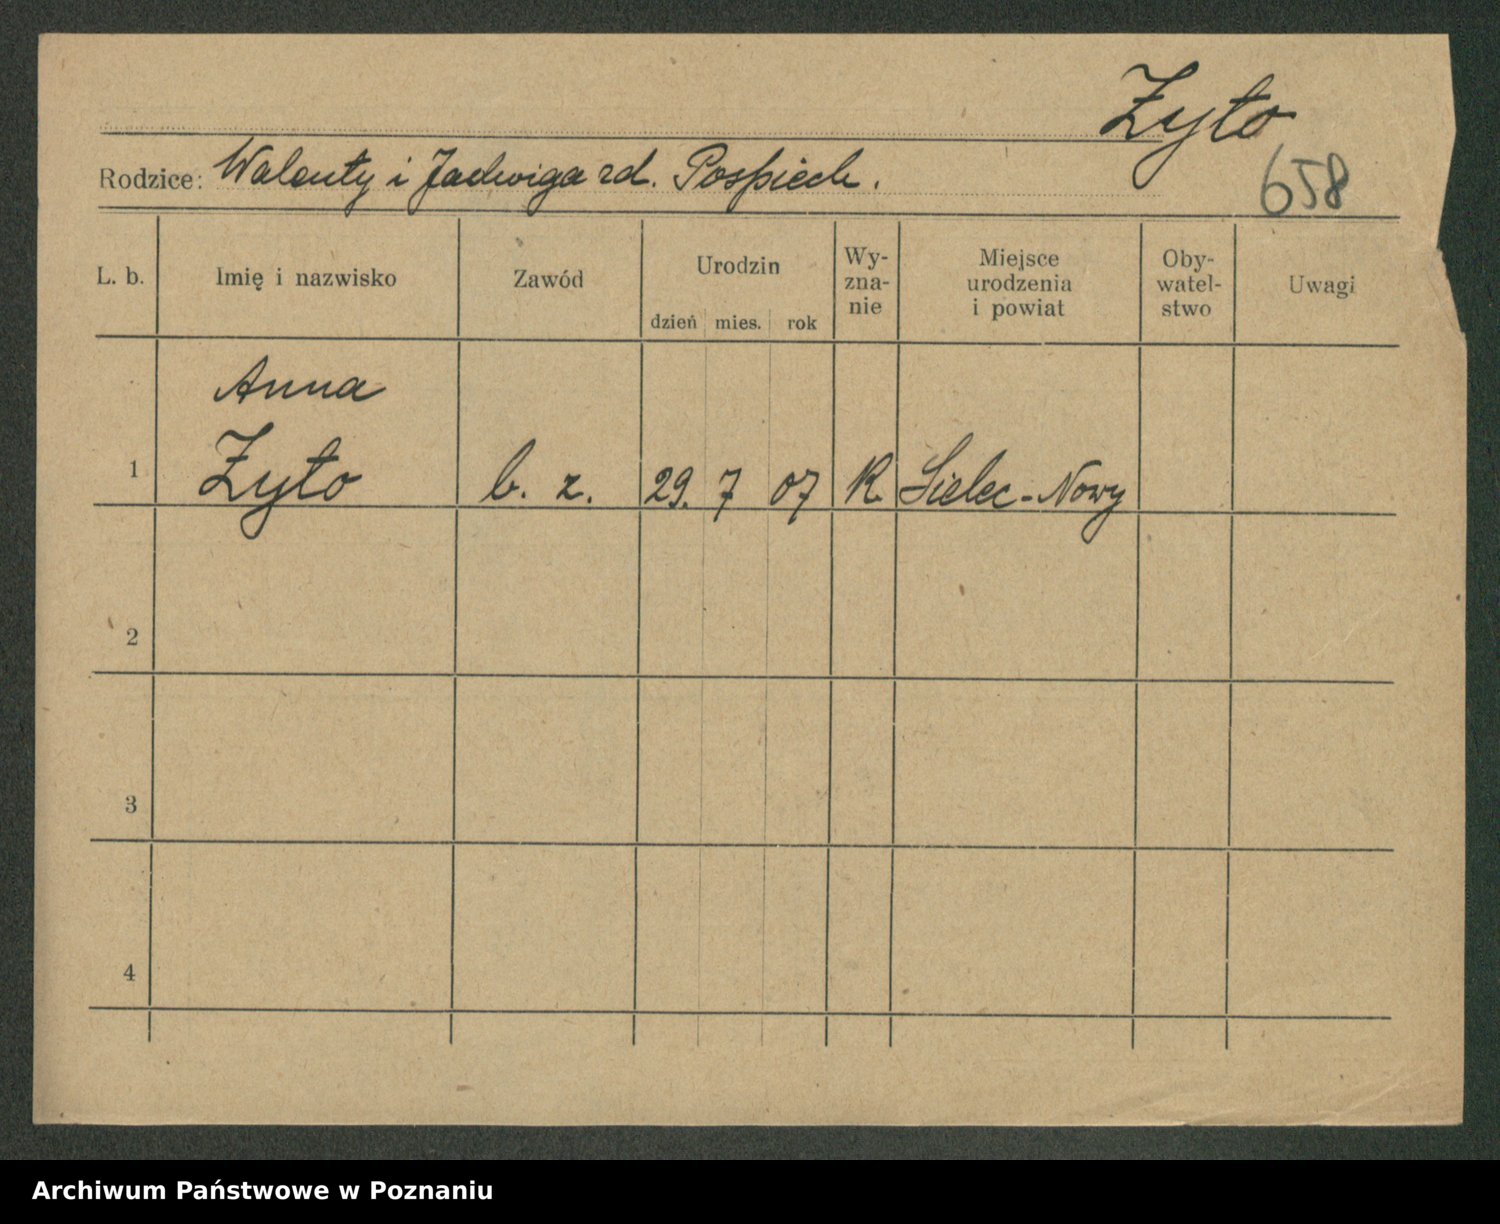 Żyto
Rodzice: Walenty i Jadwiga rd. Pospiech.
658
L. b. Imię i nazwisko Zawód Urodzin dzień mies. rok Wy-
zna-
nie Miejsce
urodzenia
i powiat Oby-
watel-
stwo Uwagi
Anna
1 Żyto b. z. 29. 7 07 K. Sielec-Nowy
2
3
4
Archiwum Państwowe w Poznaniu